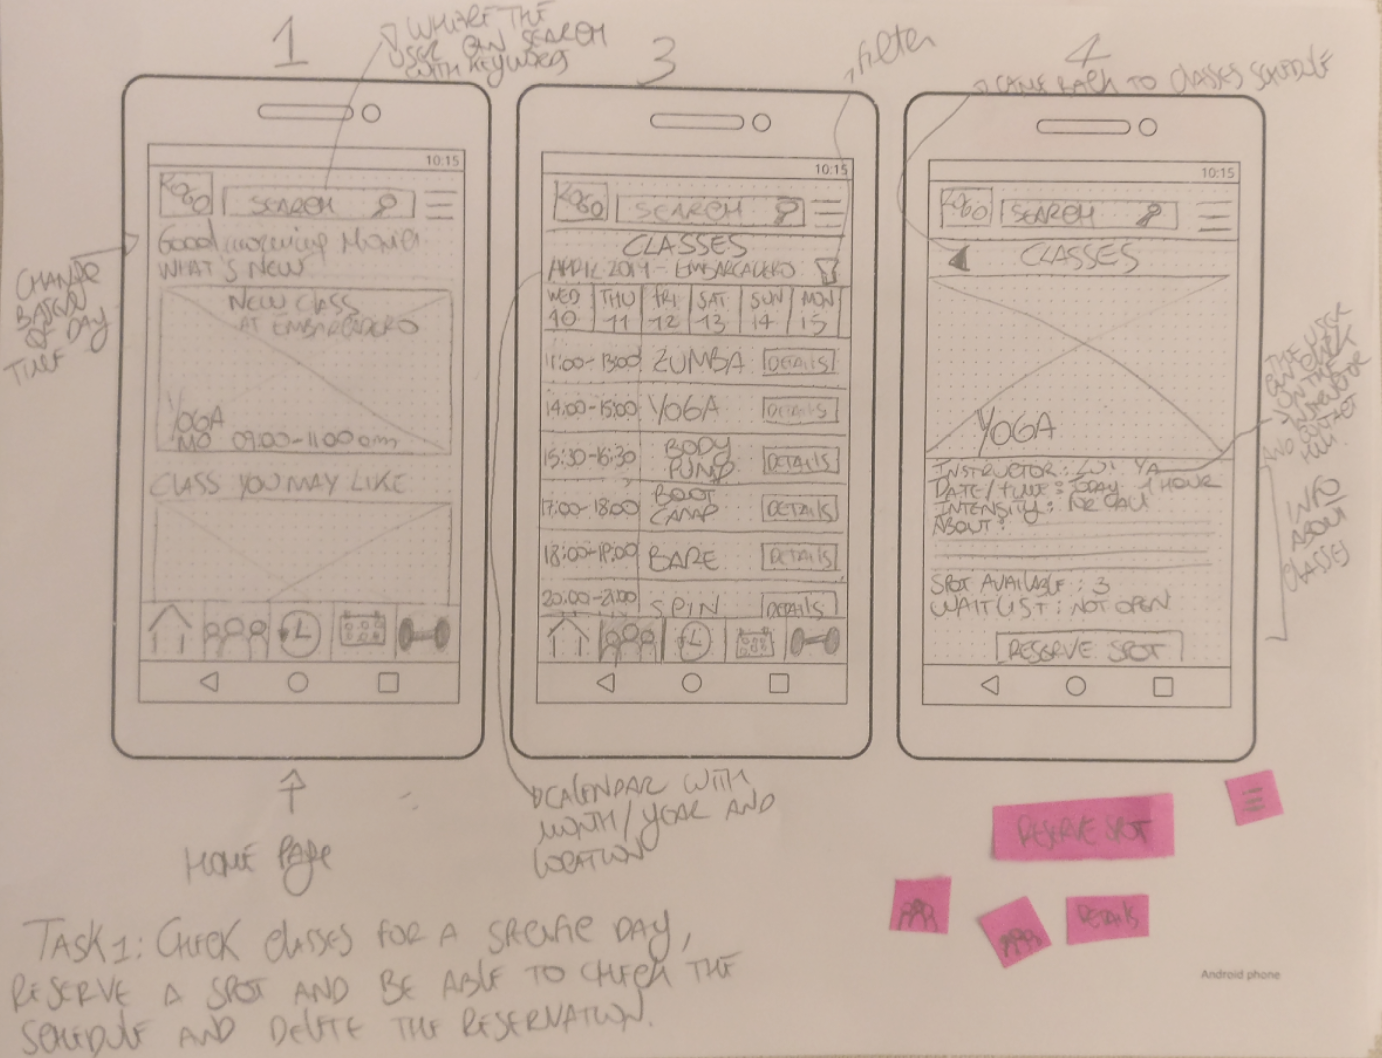 1
WHERE THE
USER CAN SEARCH
WITH KEYWORDS
3
filter
4
CAME BACK TO CLASSES SCHEDULE
CHANGE
BASED
OF DAY
TIME
10:15
LOGO
SEARCH
Good morning
WHAT'S NEW
NEW CLASS
AT EMBARCADERO
YOGA
MO 09:00-11:00am
CLASS YOU MAY LIKE
HOME PAGE
10:15
LOGO
SEARCH
CLASSES
APRIL 2019 - EMBARCADERO
WED THU FRI SAT SUN MON
10 11 12 13 14 15
ZUMBA DETAILS
14:00-15:00 YOGA DETAILS
15:30-16:30 BODY PUMP DETAILS
17:00-18:00 BOOT CAMP DETAILS
18:00-19:00 BARE DETAILS
20:00-21:00 SPIN DETAILS
CALENDAR WITH
MONTH/YEAR AND
LOCATION
10:15
LOGO
SEARCH
CLASSES
YOGA
INSTRUCTOR:
DATE/TIME: TODAY 1 HOUR
INTENSITY: FOR
ABOUT:
SPOT AVAILABLE: 3
WAITLIST: NOT OPEN
RESERVE SPOT
THE USER
CAN
ON THE
AND CONTACT
INFO
ABOUT
CLASSES
RESERVE SPOT
DETAILS
Android phone
TASK1: CHECK CLASSES FOR A SPECIFIC DAY,
RESERVE A SPOT AND BE ABLE TO CHECK THE
SCHEDULE AND DELETE THE RESERVATION.